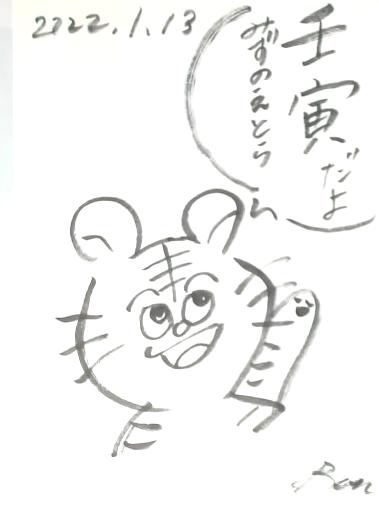 2022.1.13
壬寅だよ
みずのえとら
Ben